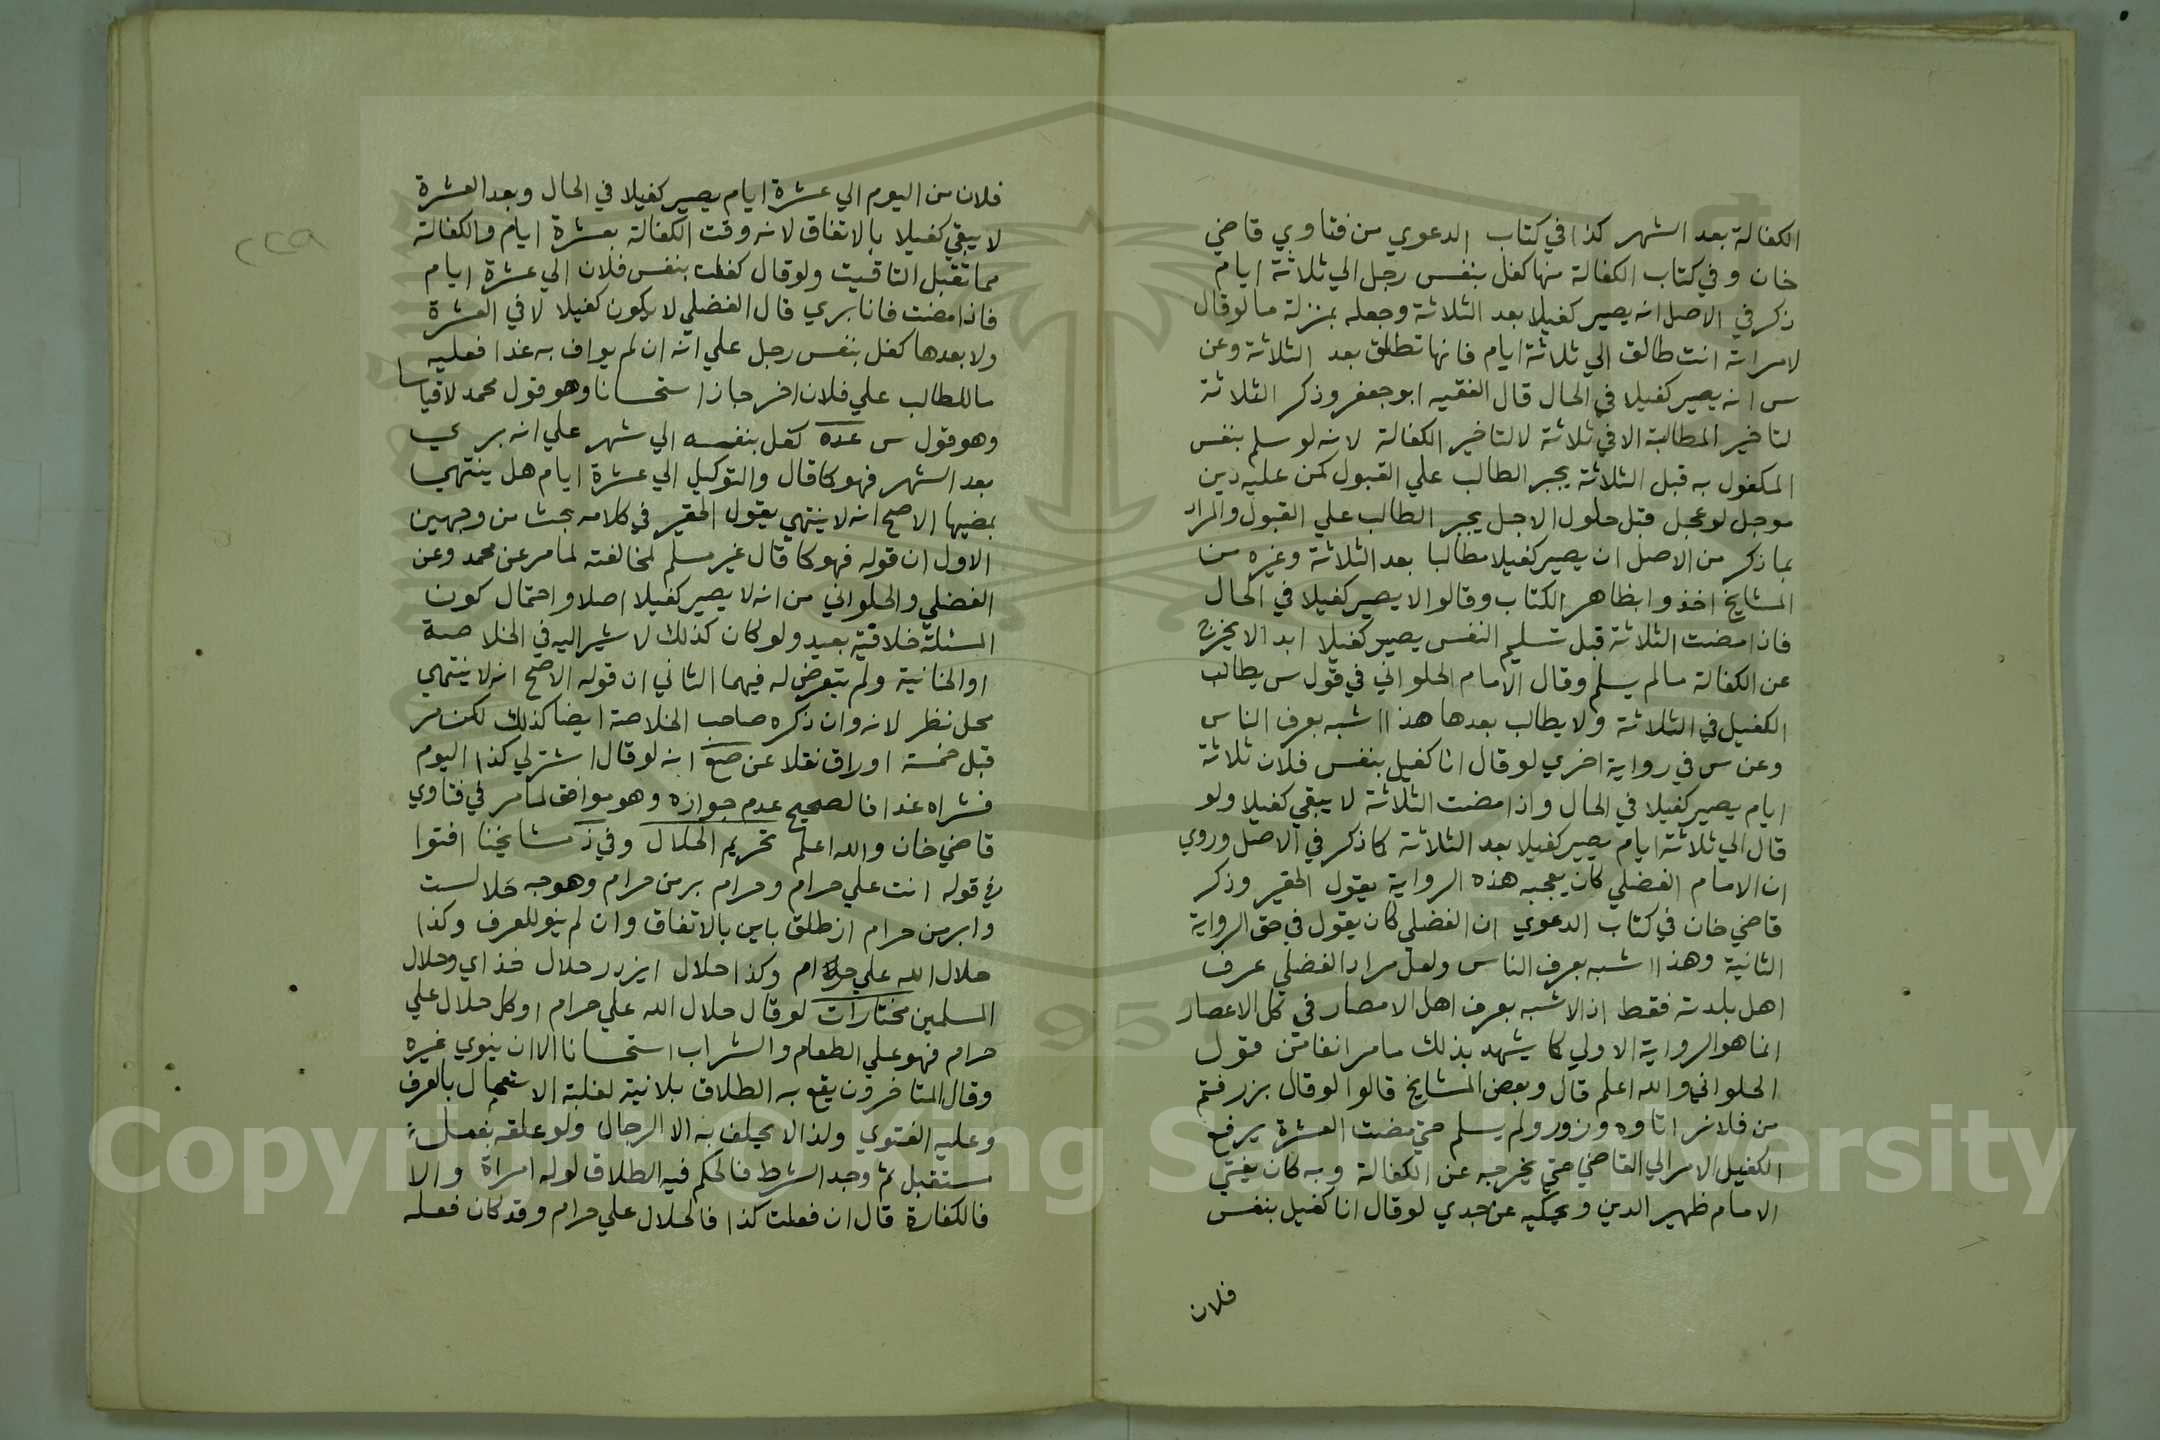 الكفالة بعد الشهر كذا في كتاب الدعوي من فتاوي قاضي
خان وفي كتاب الكفالة منها كفل بنفس رجل الي ثلاثة ايام
ذكر في الاصل انه يصير كفيلا بعد الثلاثة وجعله بمنزلة ما لو قال
لامراته انت طالق الي ثلاثة ايام فانها تطلق بعد الثلاثة وعن
س انه يصير كفيلا في الحال قال الفقيه ابو جعفر وذكر الثلاثة
لتاخير المطالبة الا في ثلاثة لا لتاخير الكفالة لانه لو سلم بنفس
المكفول به قبل الثلاثة يجبر الطالب علي القبول كمن عليه دين
موجل لو عجل قبل حلول الاجل يجبر الطالب علي القبول والمراد
بما ذكر من الاصل ان يصير كفيلا مطالبا بعد الثلاثة وغيره من
المشايخ اخذوا بظاهر الكتاب وقالوا لا يصير كفيلا في الحال
فاذا مضت الثلاثة قبل تسليم النفس يصير كفيلا ابدا لا يخرج
عن الكفالة ما لم يسلم وقال الامام الحلواني في قول س يطالب
الكفيل في الثلاثة ولا يطالب بعدها هذا اشبه بعرف الناس
وعن س في رواية اخري لو قال انا كفيل بنفس فلان ثلاثة
ايام يصير كفيلا في الحال واذا مضت الثلاثة لا يبقي كفيلا ولو
قال الي ثلاثة ايام يصير كفيلا بعد الثلاثة كما ذكر في الاصل وروي
ان الامام الفضلي كان يعجبه هذه الرواية يقول الحقير وذكر
قاضي خان في كتاب الدعوي ان الفضلي كان يقول في حق الرواية
الثانية وهذا اشبه بعرف الناس ولعل مراد الفضلي عرف
اهل بلدته فقط اذ الاشبه بعرف اهل الامصار في كل الاعصار
انما هو الرواية الاولي كما يشهد بذلك ما مر انفا من قول
الحلواني والله اعلم قال وبعض المشايخ قالوا لو قال بزرفتم
من فلانرا تا ده روز ولم يسلم حتي مضت العشرة يرفع
الكفيل الامر الي القاضي حتي يخرجه عن الكفالة وبه كان يفتي
الامام ظهير الدين ويحكيه عن جدي لو قال انا كفيل بنفس
فلان
٢٢٩
فلان من اليوم الي عشرة ايام يصير كفيلا في الحال وبعد العشرة
لا يبقي كفيلا بالاتفاق لانه وقت الكفالة بعشرة ايام والكفالة
مما تقبل التاقيت ولو قال كفلت بنفس فلان الي عشرة ايام
فاذا مضت فانا بري قال الفضلي لا يكون كفيلا لا في العشرة
ولا بعدها كفل بنفس رجل علي انه ان لم يواف به غدا فعليه
ما للطالب علي فلان اخر جاز استحسانا وهو قول محمد لا قياسا
وهو قول س عده كفل بنفسه الي شهر علي انه بري
بعد الشهر فهو كما قال والتوكيل الي عشرة ايام هل ينتهي
بمضيها الاصح انه لا ينتهي يقول الحقير في كلامه بحث من وجهين
الاول ان قوله فهو كما قال غير مسلم لمخالفته لما مر عن محمد وعن
الفضلي والحلواني من انه لا يصير كفيلا اصلا واحتمال كون
المسئلة خلافية بعيد ولو كان كذلك لاشير اليه في الخلاصة
او الخانية ولم يتعرض له فيهما الثاني ان قوله الاصح انه لا ينتهي
محل نظر لانه وان ذكره صاحب الخلاصة ايضا كذلك لكن مر
قبل خمسة اوراق نقلا عن صع انه لو قال اشتر لي كذا اليوم
فشراه غدا فالصحيح عدم جوازه وهو موافق لما مر في فتاوي
قاضي خان والله اعلم تحريم الحلال وفي ذ مشايخنا افتوا
في قوله انت علي حرام وحرام بر من حرام وهوجه حلالست
وابر من حرام ان طلق باين بالاتفاق وان لم ينو للعرف وكذا
حلال الله علي حرام وكذا حلال ايزد حلال خداي وحلال
المسلمين مختارات لو قال حلال الله علي حرام او كل حلال علي
حرام فهو علي الطعام والشراب استحسانا الا ان ينوي غيره
وقال المتاخرون يقع به الطلاق بلا نية لغلبة الاستعمال بالعرف
وعليه الفتوي ولذا لا يحلف به الا الرجال ولو علقه بفعل
مستقبل ثم وجد الشرط فالحكم فيه الطلاق لو له امراة والا
فالكفارة قال ان فعلت كذا فالحلال علي حرام وقد كان فعله
Copyright © King Saud University